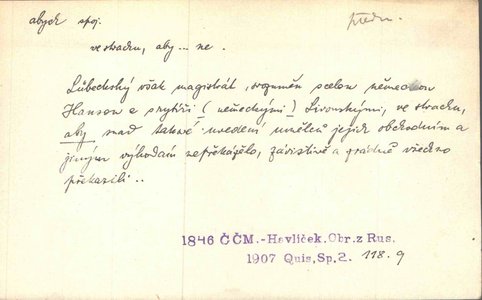 abych spoj.
ve strachu, aby … ne.
Lübechský však magistrát, srozuměn s celou německou
Hansou a s rytíři (německými) Livonskými, ve strachu,
aby snad takové uvedení umělců jejich obchodním a
jiným výhodám nepřekáželo, závistivě a zrádně všechno
překazili..
1846 ČČM.-Havlíček.Obr.z Rus.
1907 Quis,Sp.2. 118.9